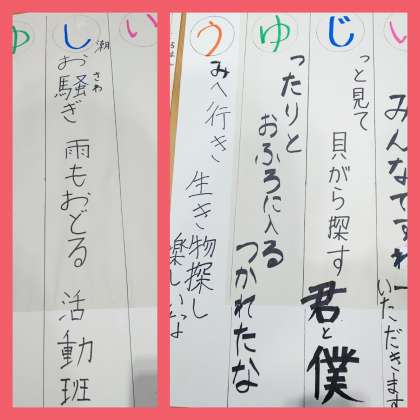 い
し
潮
お騒ぎ
さわ
雨もおどる
活動班
ゆ
い
みんなですわー
いただきます
じ
っと見て
貝がら探す
君と僕
ゆ
ったりと
おふろに入る
つかれたな
う
みへ行き
生き物探し